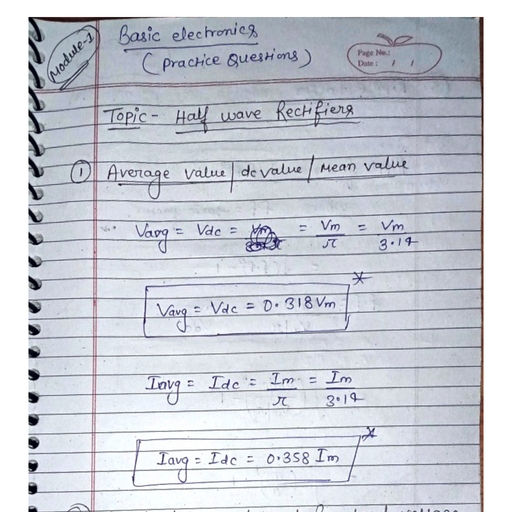 Module-1
Basic electronics
(Practice Questions)
Page No.:
Date: / /
Topic - Half wave Rectifiers
① Average value / dc value / Mean value
Vavg = Vdc = = Vm/π = Vm/3.14
Vavg = Vdc = 0.318 Vm *
Iavg = Idc = Im/π = Im/3.14
Iavg = Idc = 0.358 Im *